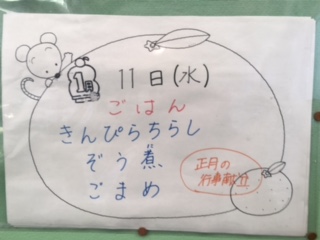 1月 11日(水)
ごはん
きんぴらちらし
ぞう煮
ごまめ
正月の
行事献立